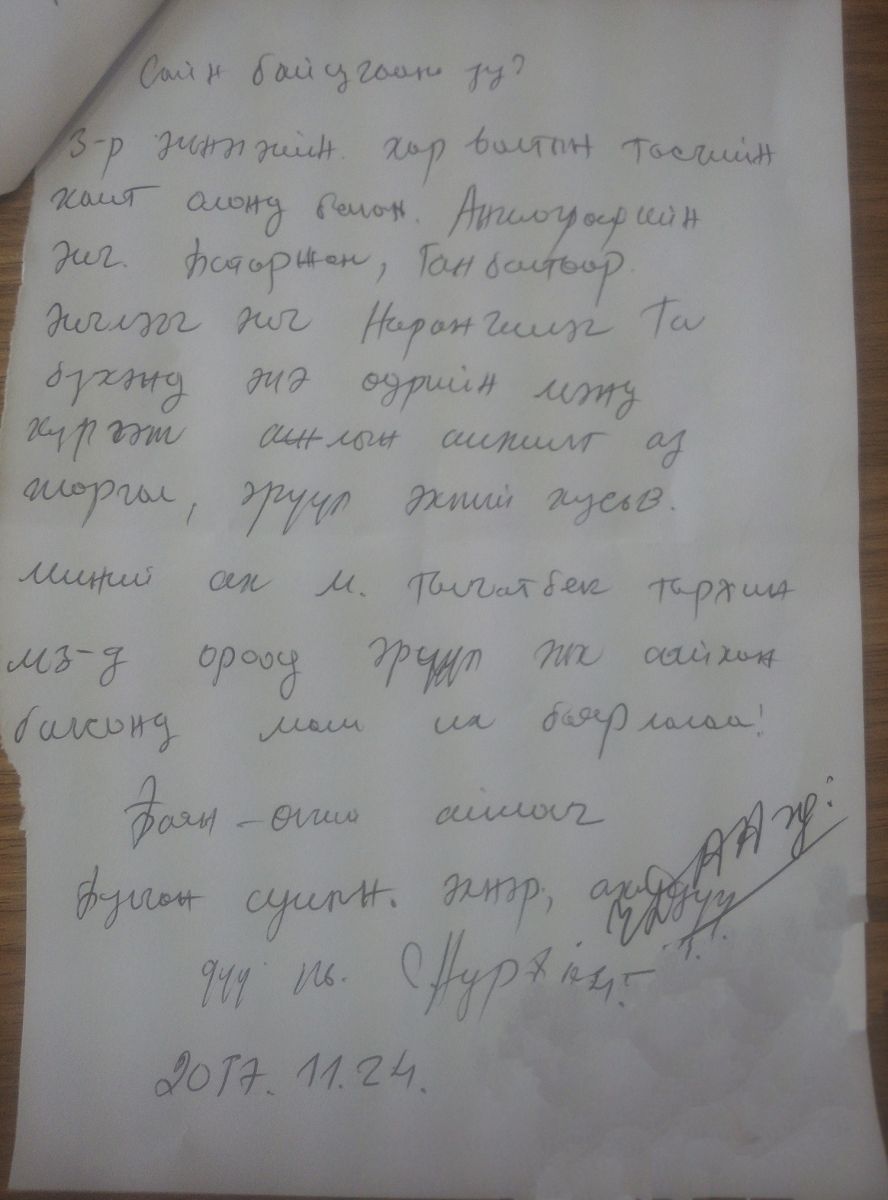 Сайн байцгаана уу?
3-р эмнэлгийн. хар валтын тасгийн
хамт олонд болон. Ангиографийн
эмч. Батаржан, Ганбаатар.
эмчлэгч эмч Нарангэрэл Та
бүхэнд энэ өдрийн мэнд
хүргэж ажлын амжилт аз
жаргал, эрүүл энхийг хүсье.
миний ах М. Талгатбек тархин
мэ-д ороод эрүүл энх сайхан
болсонд маш их баярлалаа!
Баян-өлгий аймаг
Булган сумын. эхнэр, ах дүү
дүү нь.
2017.11.24.